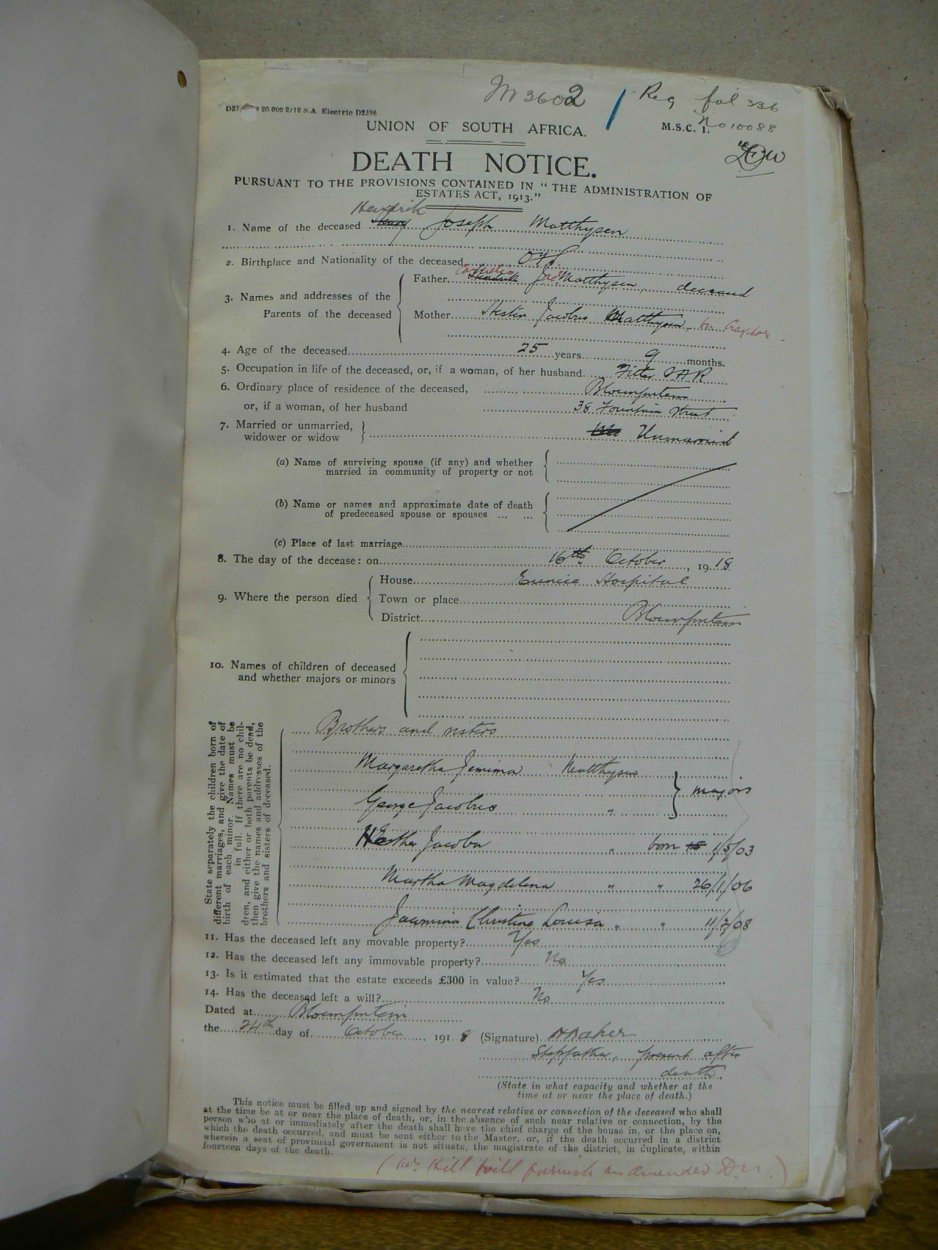 M 3602 / Reg fol 336
D27 20.000 2/18 S.A. Electric D2896
M.S.C. 1. No 10088
UNION OF SOUTH AFRICA.
DEATH NOTICE.
PURSUANT TO THE PROVISIONS CONTAINED IN "THE ADMINISTRATION OF
ESTATES ACT, 1913."
Hendrik
1. Name of the deceased Henry Joseph Matthysen
2. Birthplace and Nationality of the deceased OFS
3. Names and addresses of the Parents of the deceased
Father Hendrik Matthysen, deceased
Mother Hester Jacoba Matthysen
4. Age of the deceased 25 years 9 months.
5. Occupation in life of the deceased, or, if a woman, of her husband Fitter SAR
6. Ordinary place of residence of the deceased, Bloemfontein
or, if a woman, of her husband 38 Fountain Street
7. Married or unmarried, widower or widow Unmarried
(a) Name of surviving spouse (if any) and whether
married in community of property or not
(b) Name or names and approximate date of death
of predeceased spouse or spouses ... ...
(c) Place of last marriage
8. The day of the decease: on 16th October, 1918
9. Where the person died
House Eunice Hospital
Town or place
District Bloemfontein
10. Names of children of deceased
and whether majors or minors
State separately the children born of
different marriages, and give the date of
birth of each minor. Names must be
in full. If there are no chil-
dren, and either or both parents be dead,
then give the names and addresses of the
brothers and sisters of deceased.
Brothers and sisters
Margaretha Jemima Matthysen
George Jacobus " } majors
Hester Jacoba " born 1/5/03
Martha Magdelena " " 26/1/06
Jacomina Christina Louisa " " 11/2/08
11. Has the deceased left any movable property? Yes
12. Has the deceased left any immovable property? No
13. Is it estimated that the estate exceeds £300 in value? Yes
14. Has the deceased left a will? No
Dated at Bloemfontein
the 24th day of October, 1918 (Signature)
Stepfather, present after
death
(State in what capacity and whether at the
time at or near the place of death.)
This notice must be filled up and signed by the nearest relative or connection of the deceased who shall
at the time be at or near the place of death, or, in the absence of such near relative or connection, by the
person who at or immediately after the death shall have the chief charge of the house in, or the place on,
which the death occurred, and must be sent either to the Master, or, if the death occurred in a district
wherein a seat of provincial government is not situate, the magistrate of the district, in duplicate, within
fourteen days of the death.
(Mr. Hill will furnish an amended D.N.)